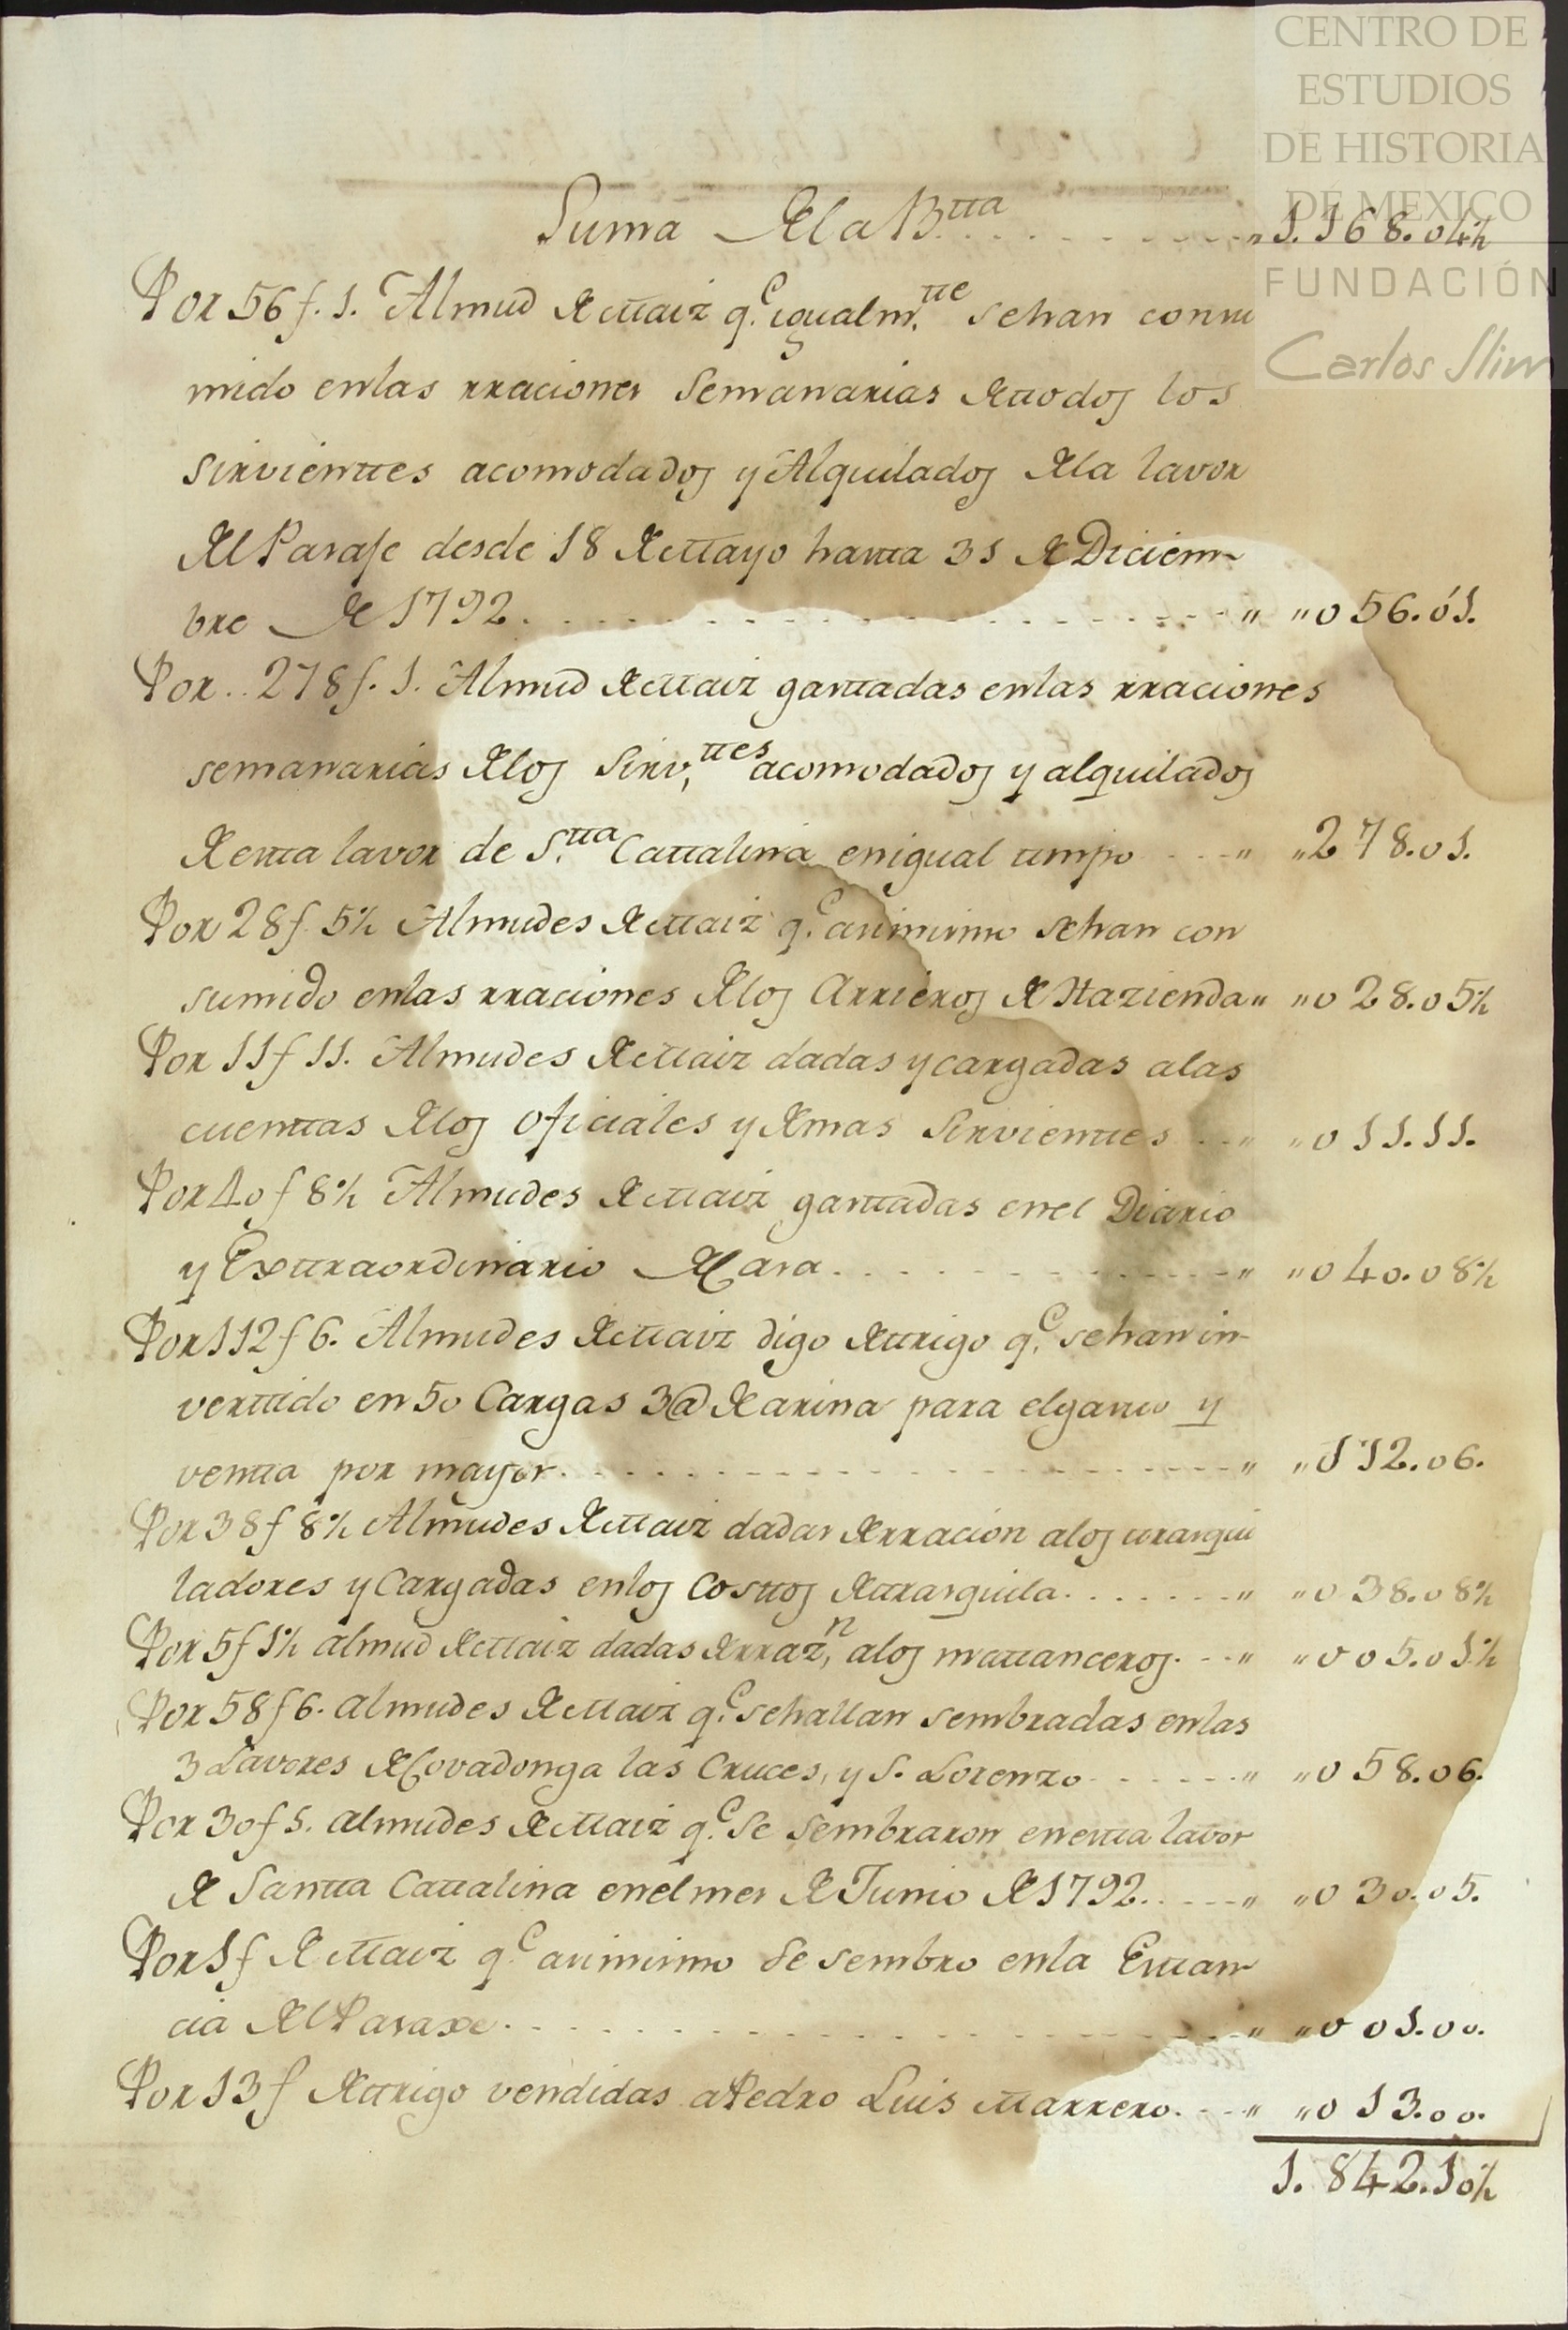 CENTRO DE
ESTUDIOS
DE HISTORIA
DE MEXICO
FUNDACIÓN
Carlos Slim
Suma de la B.tta . . . . . . . . „ 1.168.04½
Por 56 f. 1. Almud de Maiz q.e igualm.tte se han consu
mido en las rraciones Semanarias de ttodos los
sirvienttes acomodados y Alquilados de la lavor
del Parage desde 18 de Mayo hasta 31 de Diciem-
bre de 1792. . . . . . . . . . . . „ „ 056.01.
Por . . 278 f. 1. Almud de Maiz gasttadas en las rraciones
semanarias de los Sirv.ttes acomodados y alquilados
de estta lavor de S.tta Cattalina en igual tiempo . . . „ „ 278.01.
Por 28 f. 5½ Almudes de Maiz q.e asimismo se han con
sumido en las rraciones de los Arrieros de Hazienda „ „ 028.05½
Por 11 f 11. Almudes de Maiz dadas y cargadas a las
cuenttas de los oficiales y demas Sirvienttes . . „ „ 011.11.
Por 40 f 8½ Almudes de Maiz gasttadas en el Diario
y Exttraordinario de Casa . . . . . . . . . . „ „ 040.08½
Por 112 f 6. Almudes de Maiz digo de ttrigo q.e se han in-
verttido en 50 Cargas 3@ de arina para el gasto y
ventta por mayor . . . . . . . . . . . . „ „ 112.06.
Por 38 f 8½ Almudes de Maiz dadas de rracion a los trasqui
ladores y Cargadas en los Costtos de ttrasquila . . . . . . . „ „ 038.08½
Por 5 f 1½ almud de Maiz dadas de rraz.n a los mattanceros . . . „ „ 005.01½
Por 58 f 6. almudes de Maiz q.e se hallan sembradas en las
3 Lavores de Covadonga las Cruces, y S. Lorenzo . . . . . . „ „ 058.06.
Por 30 f 5. almudes de Maiz q.e Se Sembraron en estta lavor
de Santta Cattalina en el mes de Junio de 1792 . . . . . „ „ 030.05.
Por 1 f de Maiz q.e asimismo Se sembro en la Esttan-
cia del Paraxe . . . . . . . . . . . . „ „ 001.00.
Por 13 f de ttrigo vendidas a Pedro Luis Marrero . . . „ „ 013.00.
1.842.10½